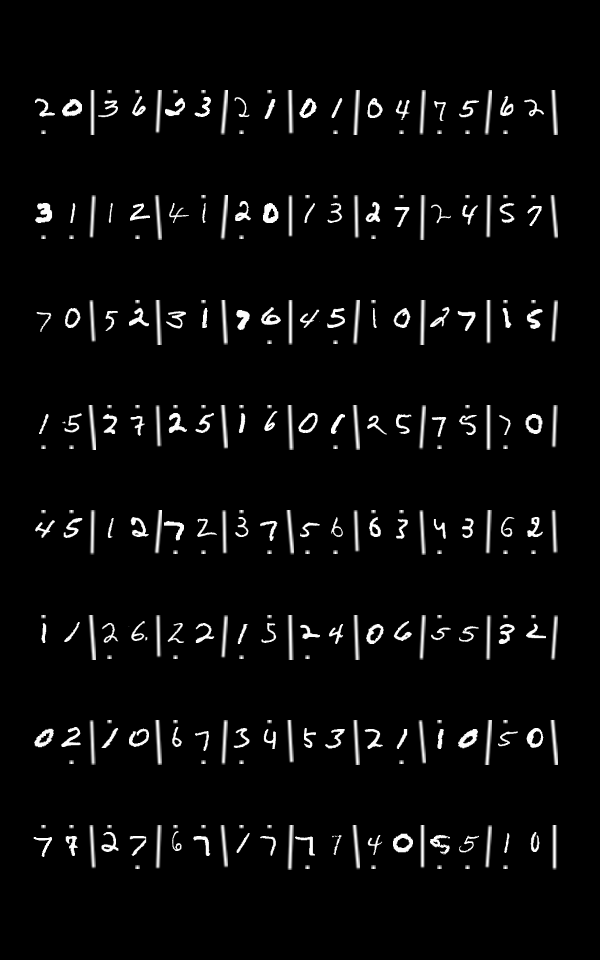 2 0 | 3 6 | 2 3 | 2 1 | 0 1 | 0 4 | 7 5 | 6 2 |
3 1 | 1 2 | 4 1 | 2 0 | 1 3 | 2 7 | 2 4 | 5 7 |
7 0 | 5 2 | 3 1 | 7 6 | 4 5 | 1 0 | 2 7 | 1 5 |
1 5 | 2 7 | 2 5 | 1 6 | 0 1 | 2 5 | 7 5 | 7 0 |
4 5 | 1 2 | 7 2 | 3 7 | 5 6 | 6 3 | 4 3 | 6 2 |
1 1 | 2 6 | 2 2 | 1 5 | 2 4 | 0 6 | 5 5 | 3 2 |
0 2 | 1 0 | 6 7 | 3 4 | 5 3 | 2 1 | 1 0 | 5 0 |
7 7 | 2 7 | 6 7 | 1 7 | 7 7 | 4 0 | 5 5 | 1 0 |